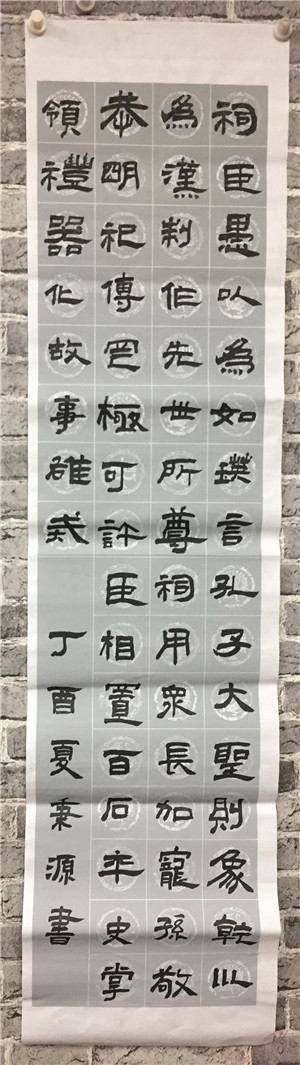 祠臣愚以為如瑛言孔子大聖則象乾川
為漢制作先世所尊祠用眾長加寵孫敬
恭明祀傳罔極可許臣相置百石卒史掌
領禮器他故事雄戒
丁酉夏秉源書